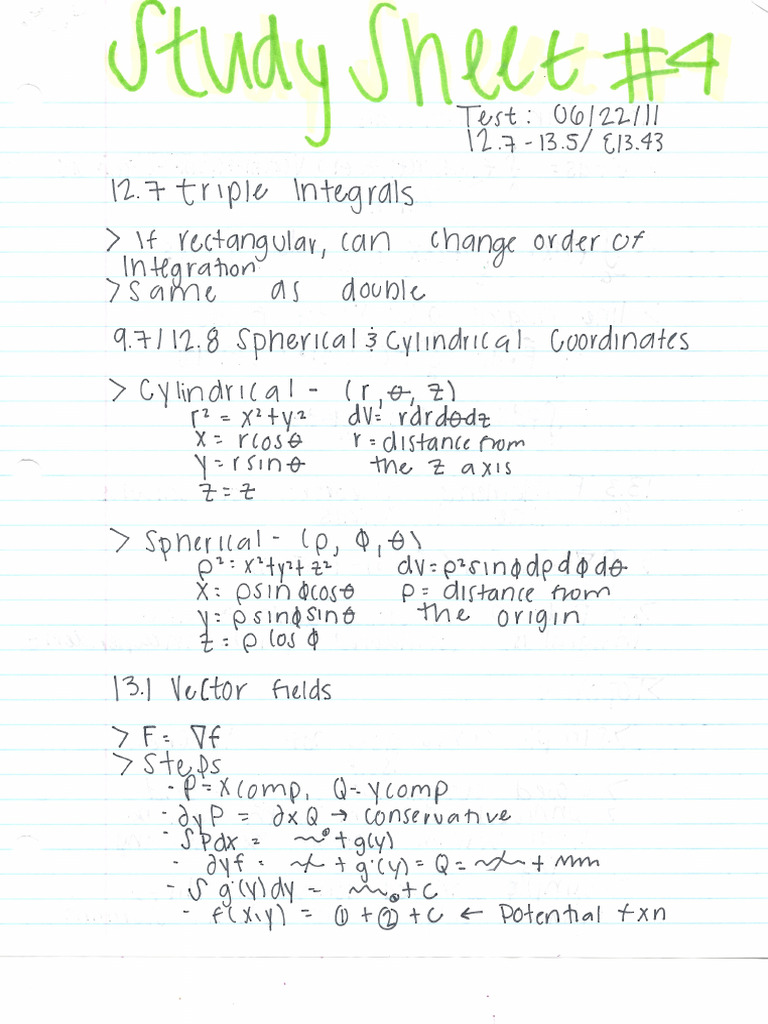 Study Sheet #4
Test: 06/22/11
12.7-13.5/ E13.43
12.7 triple Integrals
> If rectangular, can change order of
Integration
> Same as double
9.7/12.8 Spherical & Cylindrical Coordinates
> Cylindrical - (r, θ, z)
r² = x²+y² dV= rdrdθdz
x = rcosθ r = distance from
y = rsinθ the z axis
z = z
> Spherical - (ρ, Φ, θ)
ρ² = x²+y²+z² dv=ρ²sinφdρdφdθ
x= ρsinφcosθ ρ= distance from
y= ρsinφsinθ the origin
z= ρ cos φ
13.1 Vector fields
> F= ∇f
> Steps
- P=xcomp, Q=ycomp
- ∂yP = ∂xQ → conservative
- ∫Pdx = + g(y)
- ∂yf = + g'(y) = Q = +
- ∫ g'(y)dy = + C
- f(x,y) = ① + ② + C ← Potential fxn